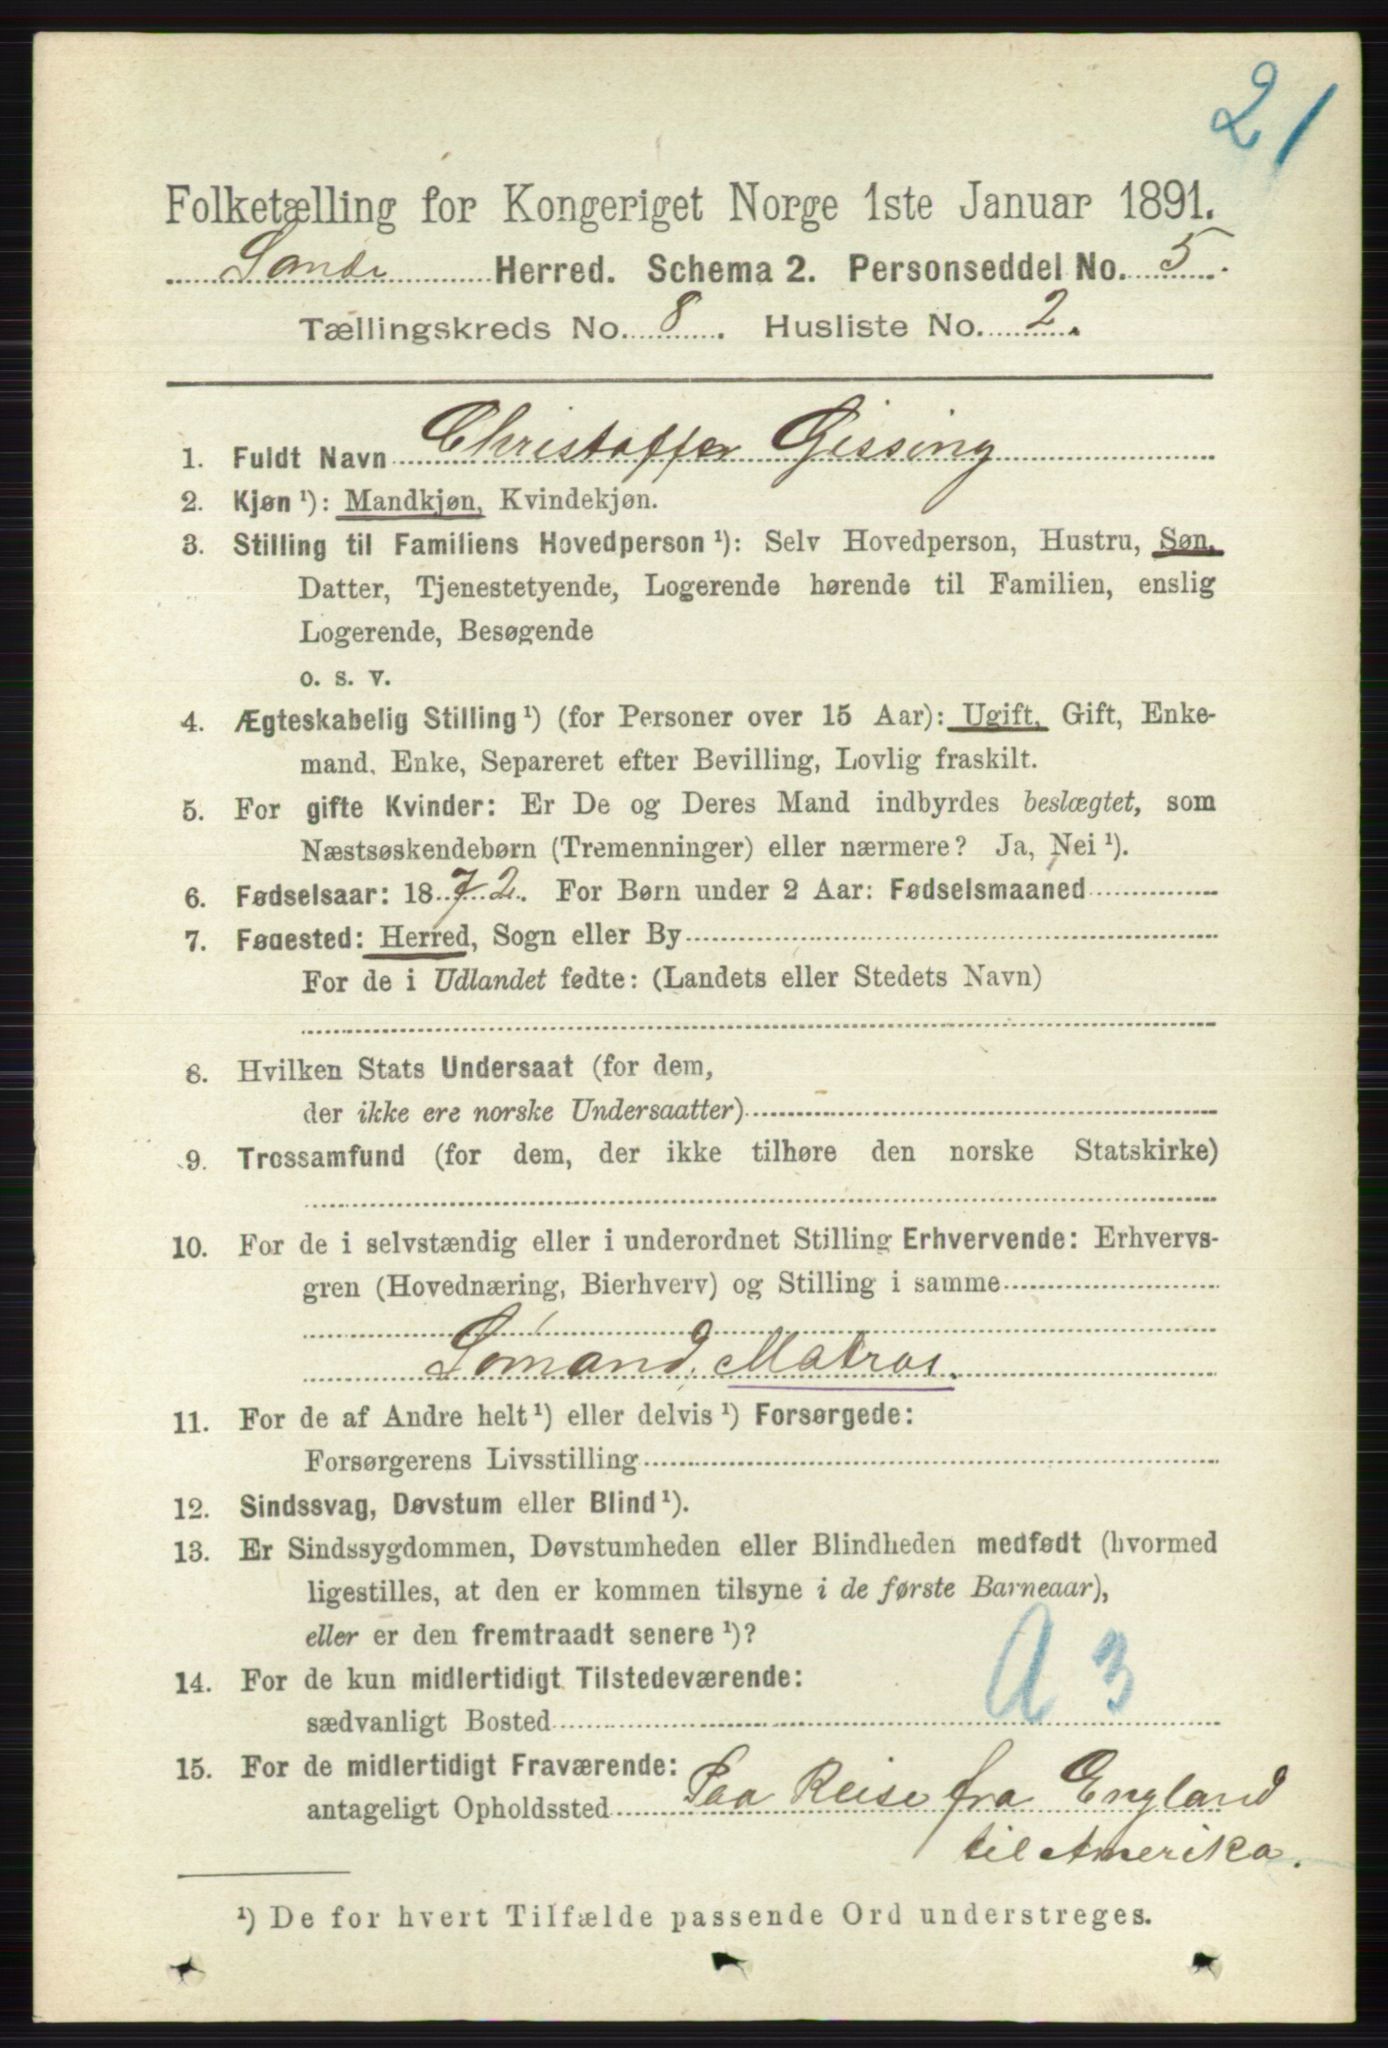 21
Folketælling for Kongeriget Norge 1ste Januar 1891.
Sande Herred. Schema 2. Personseddel No. 5.
Tællingskreds No. 8. Husliste No. 2.
1. Fuldt Navn Christoffer Gissing
2. Kjøn ¹): Mandkjøn, Kvindekjøn.
3. Stilling til Familiens Hovedperson ¹): Selv Hovedperson, Hustru, Søn,
Datter, Tjenestetyende, Logerende hørende til Familien, enslig
Logerende, Besøgende
o. s. v.
4. Ægteskabelig Stilling ¹) (for Personer over 15 Aar): Ugift, Gift, Enke-
mand, Enke, Separeret efter Bevilling, Lovlig fraskilt.
5. For gifte Kvinder: Er De og Deres Mand indbyrdes beslægtet, som
Næstsøskendebørn (Tremenninger) eller nærmere? Ja, Nei ¹).
6. Fødselsaar: 1872. For Børn under 2 Aar: Fødselsmaaned
7. Fødested: Herred, Sogn eller By
For de i Udlandet fødte: (Landets eller Stedets Navn)
8. Hvilken Stats Undersaat (for dem,
der ikke ere norske Undersaatter)
9. Trossamfund (for dem, der ikke tilhøre den norske Statskirke)
10. For de i selvstændig eller i underordnet Stilling Erhvervende: Erhvervs-
gren (Hovednæring, Bierhverv) og Stilling i samme
Sømand, Matros.
11. For de af Andre helt ¹) eller delvis ¹) Forsørgede:
Forsørgerens Livsstilling
12. Sindssvag, Døvstum eller Blind ¹).
13. Er Sindssygdommen, Døvstumheden eller Blindheden medfødt (hvormed
ligestilles, at den er kommen tilsyne i de første Barneaar),
eller er den fremtraadt senere ¹)?
A 3
14. For de kun midlertidigt Tilstedeværende:
sædvanligt Bosted
15. For de midlertidigt Fraværende:
antageligt Opholdssted Paa Reise fra England
til Amerika.
¹) De for hvert Tilfælde passende Ord understreges.